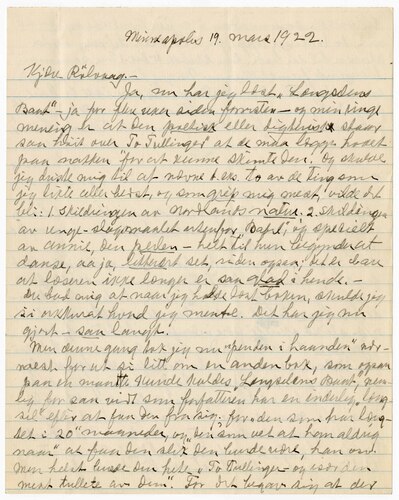 Minneapolis 19. mars 1922.
Kjære Rölvaag.-
Ja, nu har jeg læst "Længselens
Baat" - ja for flere uker siden forresten - og min ringe
mening er at den poetisk eller digterisk staar
saa höit over "To Tullinger" at de maa lægge hodet
paa nakken for at kunne skimte den. og skulde
jeg driste mig til at nævne f.eks. to av de ting som
jeg likte allerbedst, og som grep mig mest, vilde det
bli: 1 skildringen av Nordlands natur, 2. skildringen
av unge- og
av Annie, den perlen - helt til hun begynder at
danse, aa ja, litterært set, siden ogsaa, det er bare
at læseren ikke længer er saa glad i hende. -
Du bad mig at naar jeg hadde læst boken, skulde jeg
si oprigtig hvad jeg mente. Det har jeg nu
gjort - saa langt.
Men denne gang tok jeg nu "pennen i haanden" nær-
mest for at si litt om en anden bok, som ogsaa
paa en maate kunde kaldes "Længselens Baat", nem-
lig for saa vidt som forfatteren har en underlig "læng-
sel" efter at faa den fra sig: for den som har
set i 20 maaneder, og den som vet at ham aldrig
naar at faa den slik den burde vært, han om
Men helst burde den hete "To Tullinger - og
mest tullete av dem". For det lagar sig at der